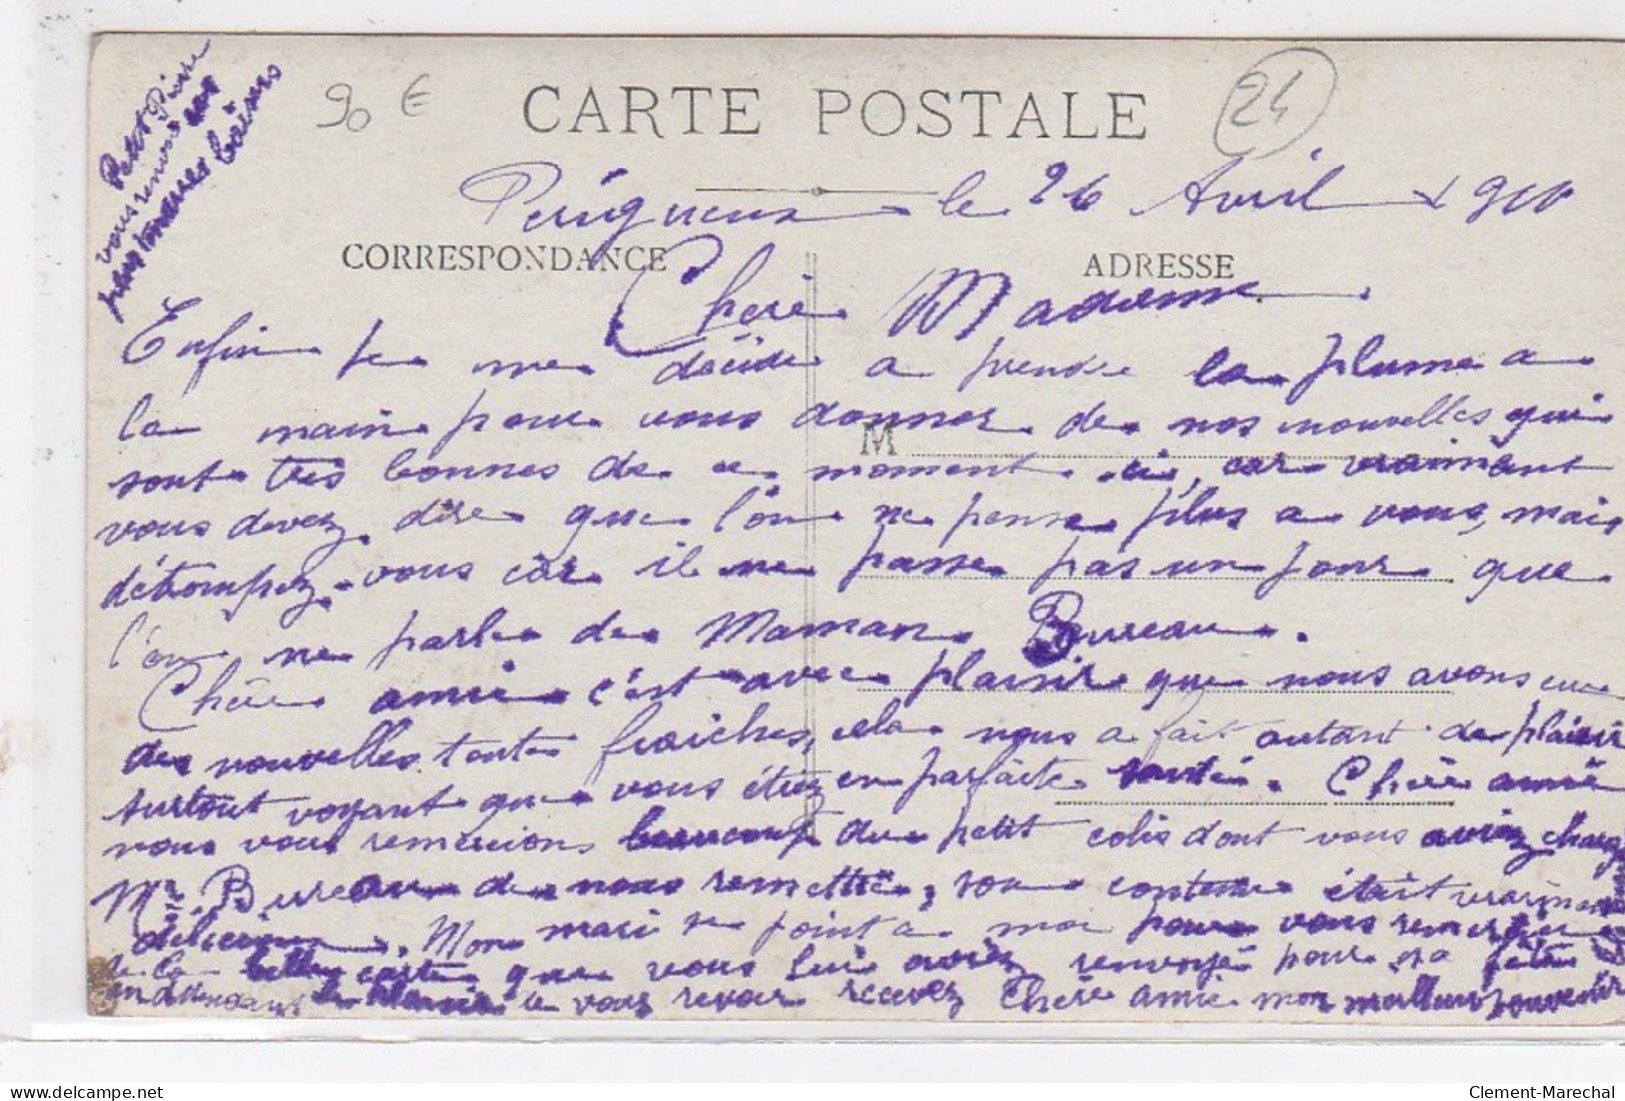 Petit Pierre
vous renvoie ses
plus tendres baisers
90 €
CARTE POSTALE
24
Périgueux le 26 Avril 1910
CORRESPONDANCE
ADRESSE
Chère Madame
Enfin je me décide a prendre la plume a
la main pour vous donner de nos nouvelles qui
M
sont très bonnes de ce moment ci, car vraiment
vous devez dire que l'on ne pense plus a vous, mais
détrompez-vous car il ne passe pas un jour que
l'on ne parle de Maman Bureau.
Chère amie c'est avec plaisir que nous avons eue
des nouvelles toutes fraiches, cela nous a fait autant de plaisir
surtout voyant que vous étiez en parfaite santé. Chère amie
nous vous remercions beaucoup du petit colis dont vous aviez chargé
Mr Bureau de nous remettre, son contenu était vraiment
délicieux. Mon mari se joint à moi pour vous remercier
de la belle carte que vous lui aviez renvoyé pour sa fête
en attendant le plaisir de vous revoir recevez Chère amie mon meilleur souvenir
delcampe.net
Clement-Marechal